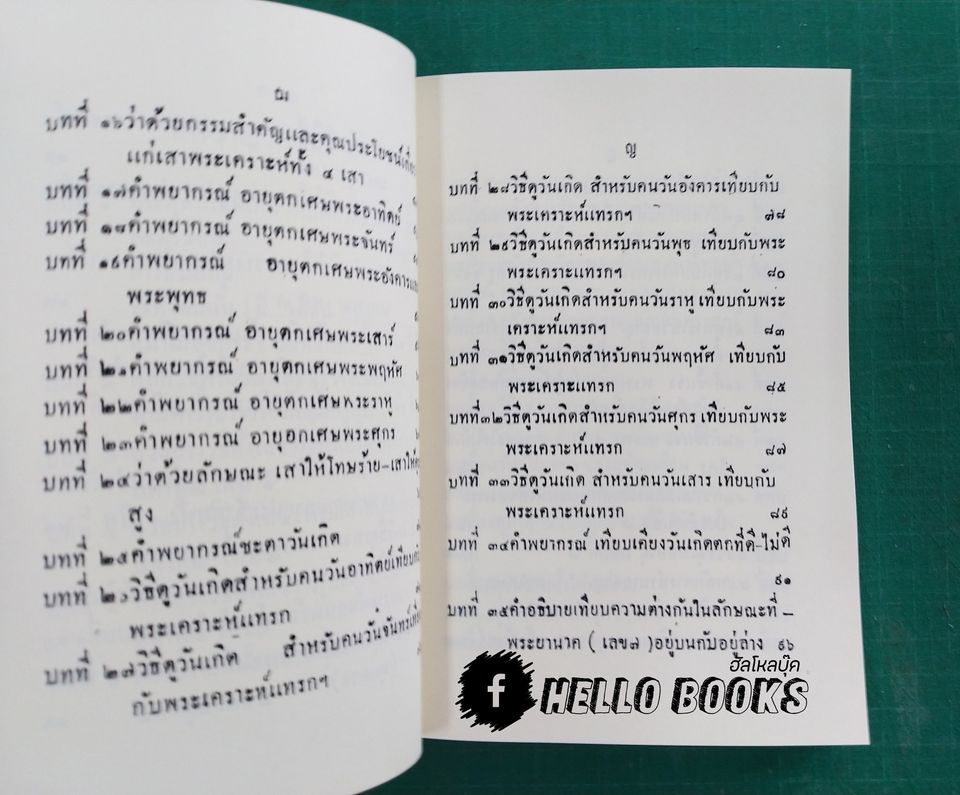 ฌ
บทที่ ๑๖ว่าด้วยกรรมสำคัญและคุณประโยชน์
แก่เสาพระเคราะห์ทั้ง ๔ เสา
บทที่ ๑๗คำพยากรณ์ อายุตกเศษพระอาทิตย์
บทที่ ๑๘คำพยากรณ์ อายุตกเศษพระจันทร์
บทที่ ๑๙คำพยากรณ์ อายุตกเศษพระอังคารและ
พระพุทธ
บทที่ ๒๐คำพยากรณ์ อายุตกเศษพระเสาร์
บทที่ ๒๑คำพยากรณ์ อายุตกเศษพระพฤหัศ
บทที่ ๒๒คำพยากรณ์ อายุตกเศษพระราหู
บทที่ ๒๓คำพยากรณ์ อายุอกเศษพระศุกร
บทที่ ๒๔ว่าด้วยลักษณะ เสาให้โทษร้าย-เสาให้
สูง
บทที่ ๒๕คำพยากรณ์ชะตาวันเกิด
บทที่ วิธีดูวันเกิดสำหรับคนวันอาทิตย์เทียบกับ
พระเคราะห์แทรก
บทที่ ๒๗วิธีดูวันเกิด สำหรับคนวันจันทร์
กับพระเคราะห์แทรกฯ
ญ
บทที่ ๒๘วิธีดูวันเกิด สำหรับคนวันอังคารเทียบกับ
พระเคราะห์แทรกฯ ๗๘
บทที่ ๒๙วิธีดูวันเกิดสำหรับคนวันพุธ เทียบกับพระ
พระเคราะแทรกฯ ๘๐
บทที่ ๓๐วิธีดูวันเกิดสำหรับคนวันราหู เทียบกับพระ
เคราะห์แทรกฯ ๘๓
บทที่ ๓๑วิธีดูวันเกิดสำหรับคนวันพฤหัศ เทียบกับ
พระเคราะแทรก ๘๕
บทที่๓๒วิธีดูวันเกิดสำหรับคนวันศุกร เทียบกับพระ
พระเคราะห์แทรก ๘๗
บทที่ ๓๓วิธีดูวันเกิด สำหรับคนวันเสาร เทียบกับ
พระเคราะห์แทรก ๘๙
บทที่ ๓๔คำพยากรณ์ เทียบเคียงวันเกิดตกที่ดี-ไม่ดี
๙๑
บทที่ ๓๕คำอธิบายเทียบความต่างกันในลักษณะที่ -
พระยานาค ( เลข๗ )อยู่บนกับอยู่ล่าง ๙๖
ฮัลโหลบุ๊ค
f HELLO BOOKS